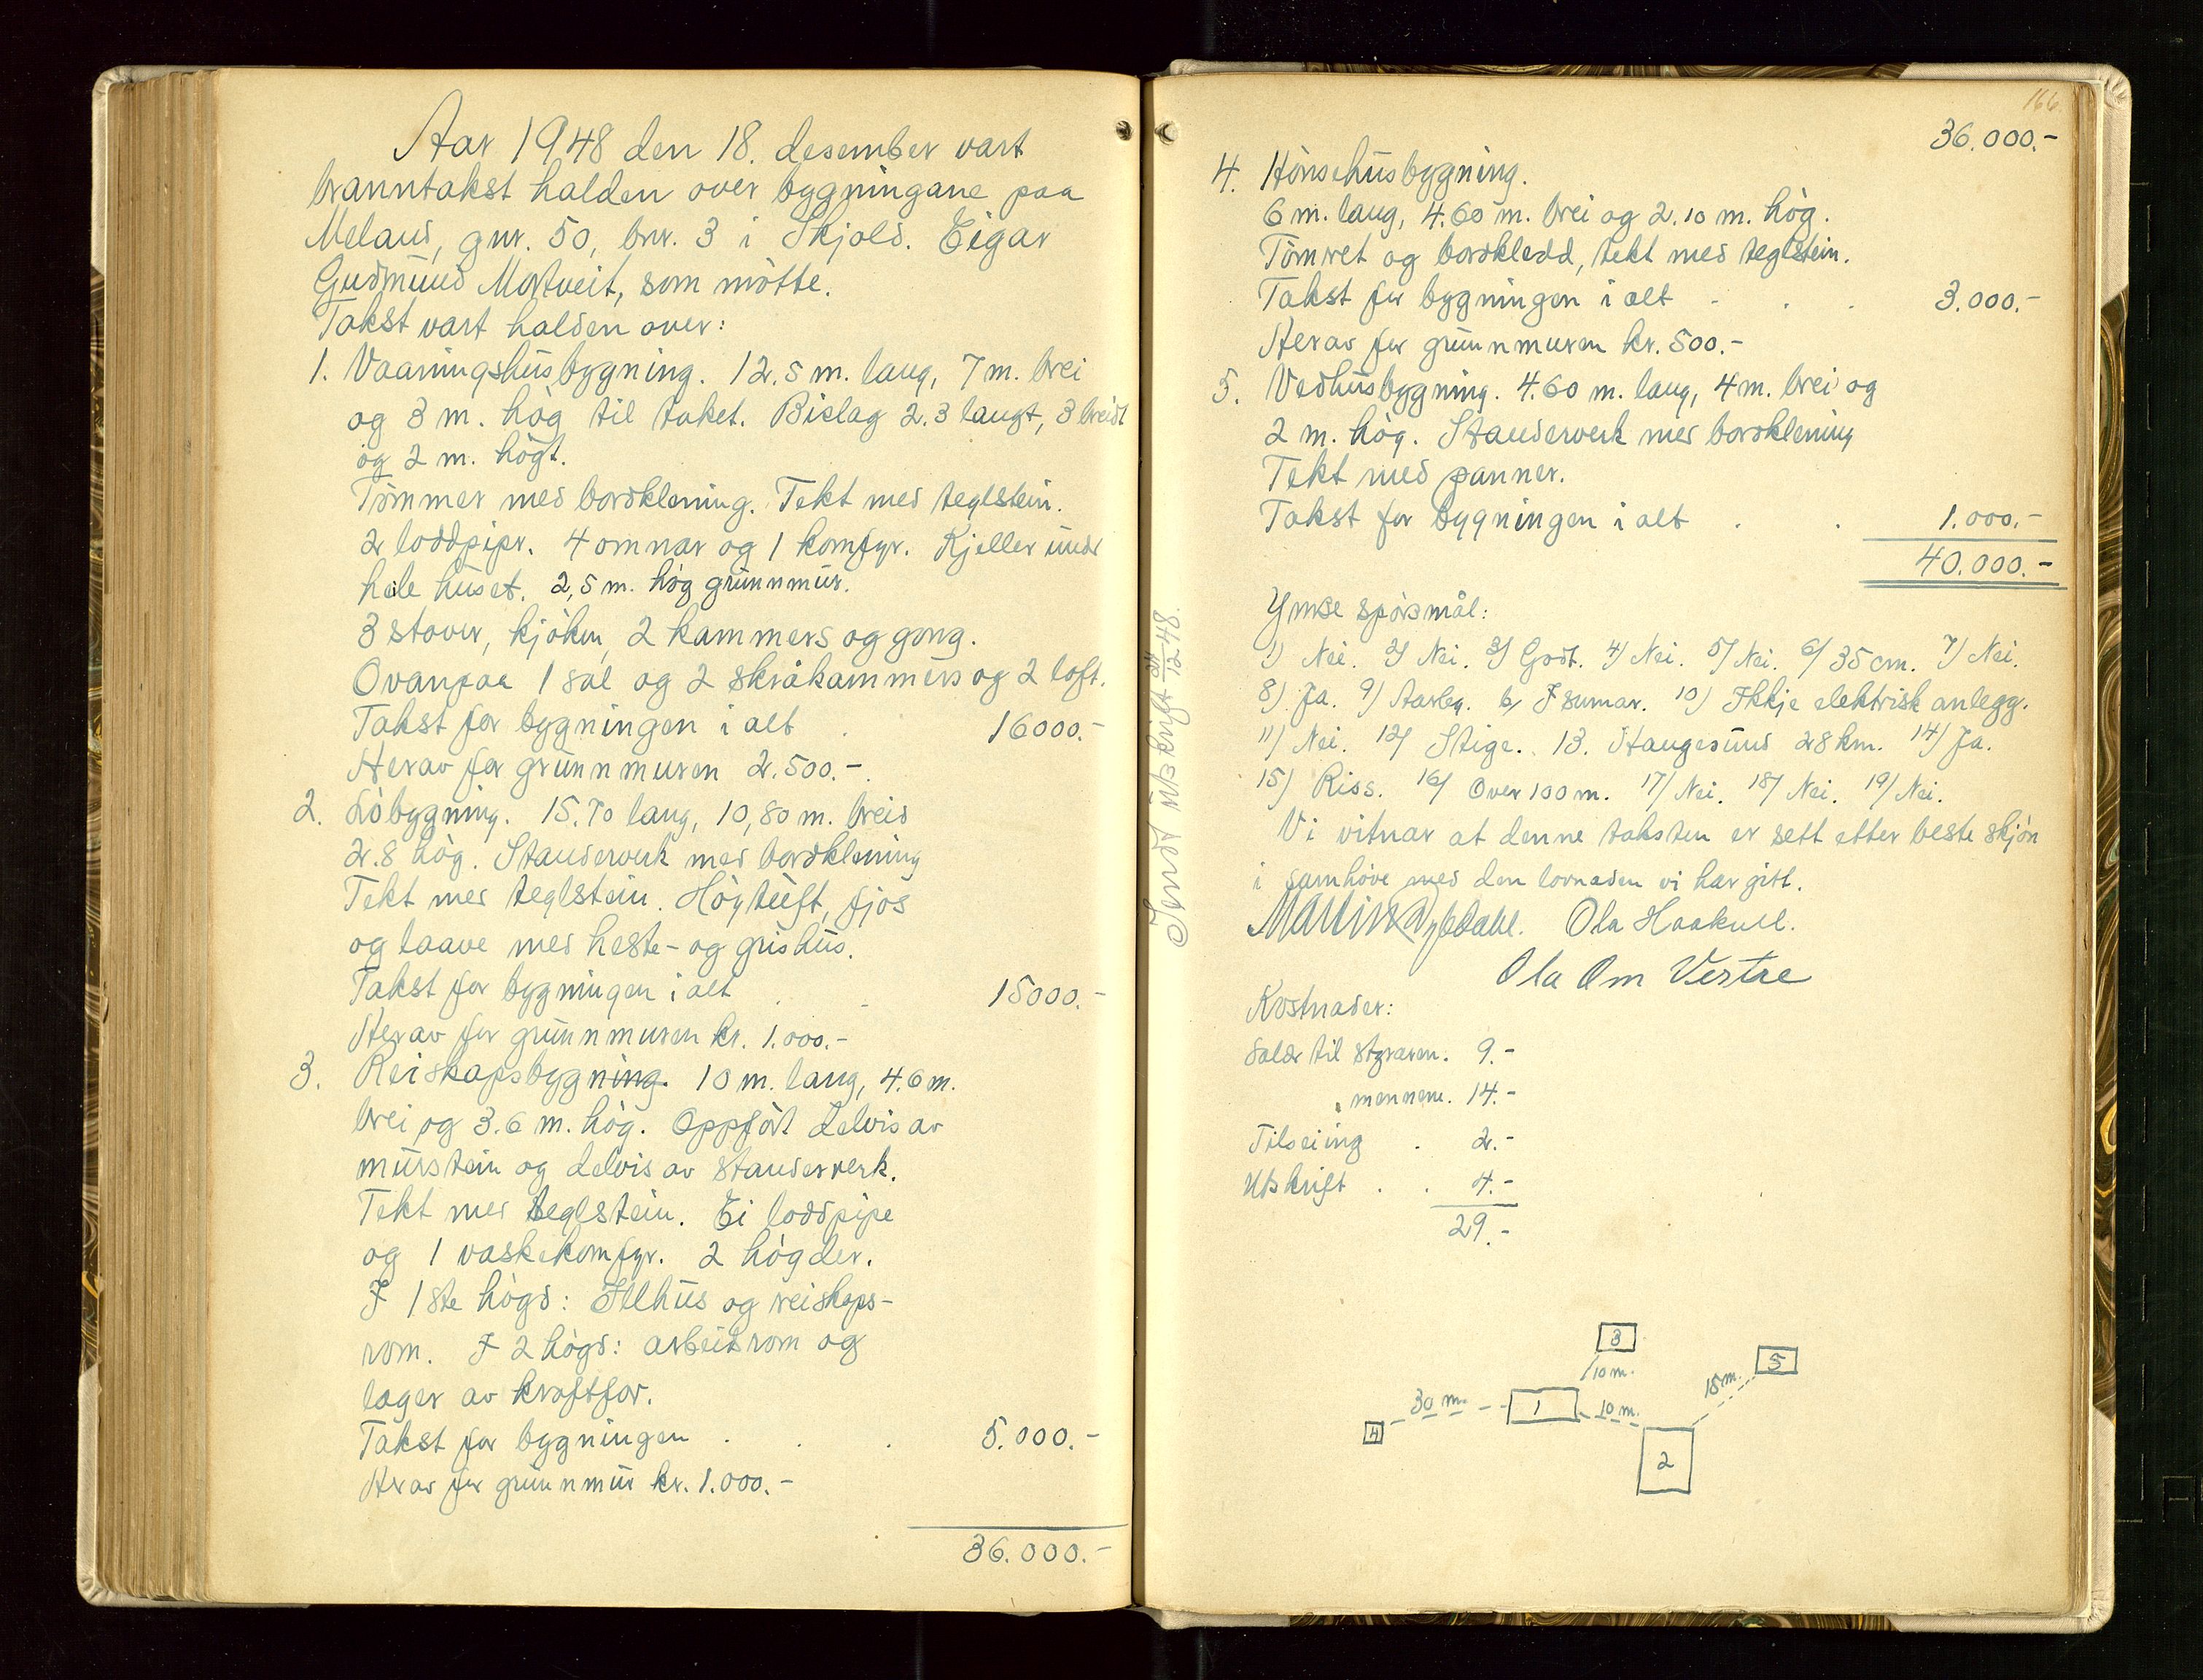 Aar 1948 den 18. desember vart
branntakst halden over bygningane paa
Meland, gnr. 50, bnr. 3 i Skjold. Eigar
Gudmund Mortveit, som mötte.
Takst vart halden over:
1. Vaaningshusbygning. 12.5 m. lang, 7 m. brei
og 3 m. hög til taket. Bislag 2.3 langt, 3 breidt
og 2 m. högt.
Tömmer med bordkledning. Tekt med teglstein.
2 loddpipr. 4 omnar og 1 komfyr. Kjeller undr
hele huset. 2,5 m. hög grunnmur.
3 stover, kjöken, 2 kammers og gong.
Ovanpaa 1 sal og 2 skråkammers og 2 loft.
Takst for bygningen i alt . 16000.-
Herav for grunnmuren 2.500.-
2. Löbygning. 15.70 lang, 10,80 m. breid
2.8 hög. Standerverk med bordkledning
Tekt med teglstein. Högtuft, fjös
og laave med heste- og grishus.
Takst for bygningen i alt . . 15000.-
Herav for grunnmuren kr. 1.000.-
3. Reiskapsbygning. 10 m. lang, 4.6 m.
brei og 3.6 m. hög. Oppfört delvis av
murstein og delvis av standerverk.
Tekt med teglstein. Ei loddpipe
og 1 vaskekomfyr. 2 högder.
I 1ste högd: Illhus og reiskaps-
rom. I 2 högd: arbeidsrom og
lager av kraftfor.
Takst for bygningen . . . 5.000.-
Herav for grunnmur kr. 1.000.-
36.000.-
166.
36.000.-
4. Hönsehusbygning.
6 m. lang, 4.60 m. brei og 2.10 m. hög.
Tömret og bordkledd, tekt med teglstein.
Takst for bygningen i alt . . . 3.000.-
Herav for grunnmuren kr. 500.-
5. Vedhusbygning. 4.60 m. lang, 4 m. brei og
2 m. hög. Standerverk med bordkledning
Tekt med panner.
Takst for bygningen i alt . . 1.000.-
40.000.-
Ymse spörsmål:
1) Nei. 2) Nei. 3) Godt. 4) Nei. 5) Nei. 6) 35 cm. 7) Nei.
8) Ja. 9) Aarleg. b) I sumar. 10) Ikkje elektrisk anlegg.
11) Nei. 12) Stige. 13. Haugesund 28 km. 14) Ja.
15) Riss. 16) Over 100 m. 17) Nei. 18) Nei. 19) Nei.
Vi vitnar at denne taksten er sett etter beste skjön
i samhöve med den lovnaden vi har gitt.
Ola Haakull.
Ola Om Vestre
Kostnader:
Salær til styraren. 9.-
" mennene. 14.-
Tilseiing . 2.-
Utskrift . . 4.-
29.-
Sendt utskrift 12-48
3
10 m.
5
15 m.
30 m.
1
10 m.
4
2